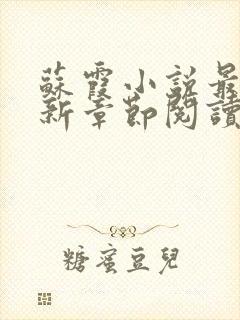 蘇霞小說最
新章節閱讀
糖蜜豆兒